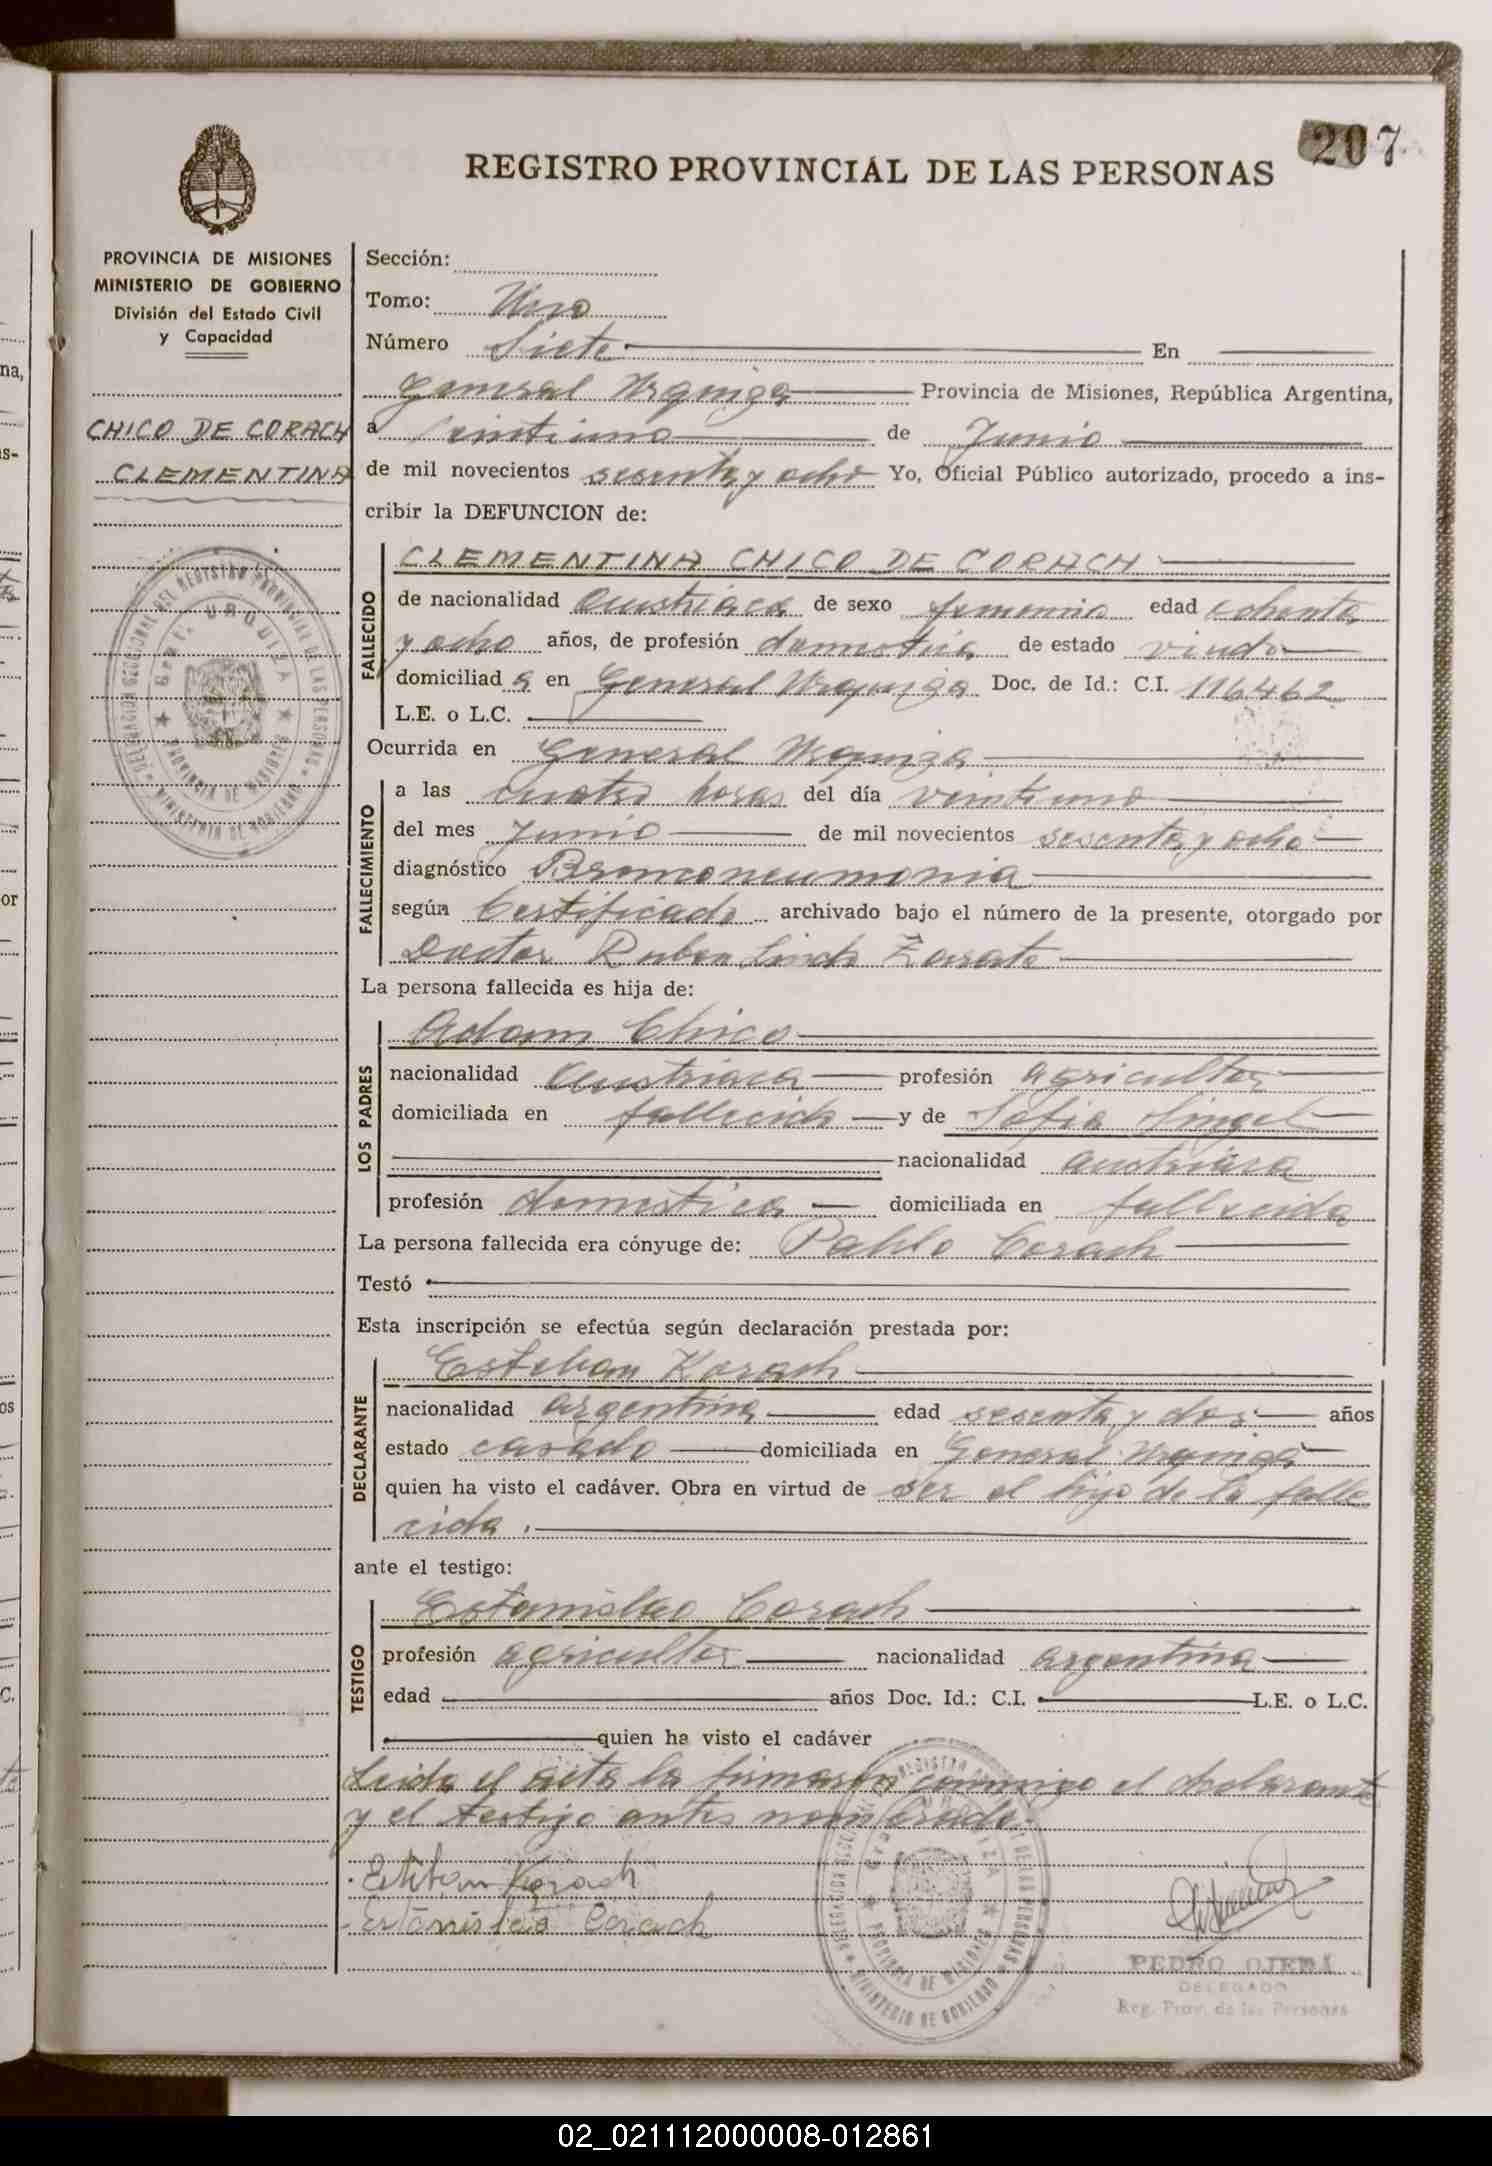 207
REGISTRO PROVINCIAL DE LAS PERSONAS
PROVINCIA DE MISIONES
MINISTERIO DE GOBIERNO
División del Estado Civil
y Capacidad
CHICO DE CORACH
CLEMENTINA
Sección:
Tomo: Uno
Número Siete En
General Urquiza Provincia de Misiones, República Argentina,
a veintiuno de Junio
de mil novecientos sesenta y ocho Yo, Oficial Público autorizado, procedo a ins-
cribir la DEFUNCION de:
FALLECIDO
CLEMENTINA CHICO DE CORACH
de nacionalidad Austriaca de sexo femenino edad ochenta
y ocho años, de profesión domestica de estado viuda
domiciliad a en General Urquiza Doc. de Id.: C.I. 116462
L.E. o L.C.
Ocurrida en General Urquiza
FALLECIMIENTO
a las cuatro horas del día veintiuno
del mes Junio de mil novecientos sesenta y ocho
diagnóstico Bronconeumonia
según Certificado archivado bajo el número de la presente, otorgado por
Doctor Ruben Zarate
La persona fallecida es hija de:
LOS PADRES
Adam Chico
nacionalidad Austriaca profesión agricultor
domiciliada en fallecido y de Sofia Singel
nacionalidad austriaca
profesión domestica domiciliada en fallecida
La persona fallecida era cónyuge de: Pablo Corach
Testó
Esta inscripción se efectúa según declaración prestada por:
DECLARANTE
Esteban Korach
nacionalidad argentina edad sesenta y dos años
estado casado domiciliada en General Urquiza
quien ha visto el cadáver. Obra en virtud de ser el hijo de la falle
cida.
ante el testigo:
TESTIGO
Estanislao Corach
profesión agricultor nacionalidad argentina
edad años Doc. Id.: C.I. L.E. o L.C.
quien ha visto el cadáver
Leida el acta la firmaron conmigo el declarante
y el testigo antes nombrado.
Esteban Korach
Estanislao Corach
PEDRO OJEDA
DELEGADO
Reg. Prov. de las Personas
DELEGACION SECCIONAL DEL REGISTRO PROVINCIAL DE LAS PERSONAS
GRAL. URQUIZA
PROVINCIA DE MISIONES
MINISTERIO DE GOBIERNO
02_021112000008-012861